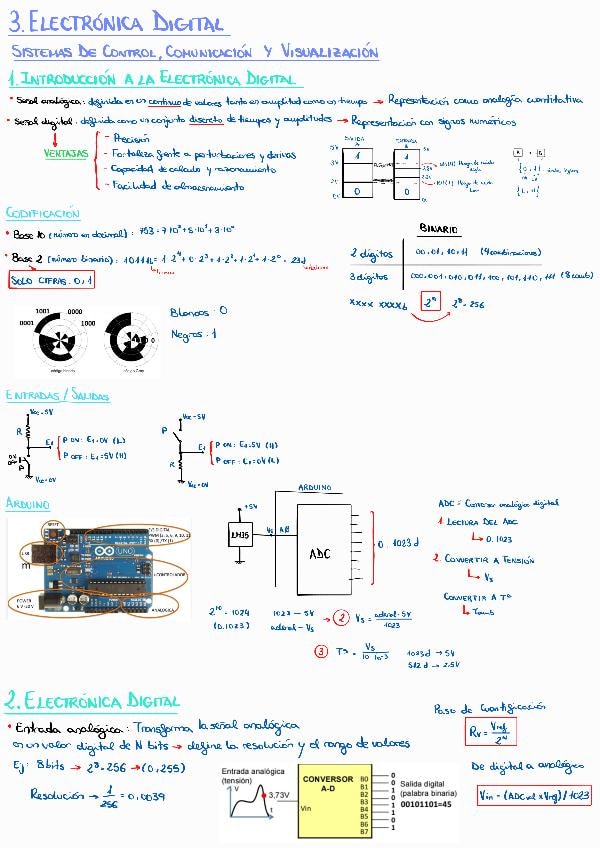 3. ELECTRÓNICA DIGITAL
SISTEMAS DE CONTROL, COMUNICACIÓN Y VISUALIZACIÓN
1. INTRODUCCIÓN A LA ELECTRÓNICA DIGITAL
• Señal analógica: definida en un continuo de valores tanto en amplitud como en tiempo → Representación como analogía cuantitativa
• Señal digital: definida como un conjunto discreto de tiempos y amplitudes → Representación con signos numéricos
VENTAJAS
- Precisión
- Fortaleza frente a perturbaciones y derivas
- Capacidad de cálculo y razonamiento
- Facilidad de almacenamiento
SALIDA
ENTRADA
5V
1
0
0V
1
0
CODIFICACIÓN
• Base 10 (número en decimal): 753 = 7·10² + 5·10¹ + 3·10⁰
• Base 2 (número binario): 10111b = 1·2⁴ + 0·2³ + 1·2² + 1·2¹ + 1·2⁰ = 23d
SOLO CIFRAS: 0, 1
BINARIO
2 dígitos
00, 01, 10, 11 (4 combinaciones)
3 dígitos
000, 001, 010, 011, 100, 101, 110, 111 (8 comb)
xxxx xxxxb
2ⁿ
2⁸ = 256
1001
0000
0001
1000
Blancos: 0
Negros: 1
ENTRADAS / SALIDAS
Vcc = 5V
R
E1
P
P ON: E1 = 0V (L)
P OFF: E1 = 5V (H)
Vcc = 0V
Vcc = 5V
P
E1
R
P ON: E1 = 5V (H)
P OFF: E1 = 0V (L)
Vcc = 0V
ARDUINO
RESET
USB
UNO
POWER
ANALOGICA
ARDUINO
+5V
LM35
Vs
ADC
0..1023d
ADC = Conversor analógico digital
1. LECTURA DEL ADC
↳ 0..1023
2. CONVERTIR A TENSIÓN
↳ Vs
CONVERTIR A Tª
↳ Tamb
2¹⁰ = 1024
(0..1023)
1023 — 5V
adcval — Vs
→ 2 Vs = adcval · 5V / 1023
3 Tª = Vs / 10·10⁻³
1023d → 5V
512d → 2.5V
2. ELECTRÓNICA DIGITAL
• Entrada analógica: Transforma la señal analógica
en un valor digital de N bits → define la resolución y el rango de valores
Ej: 8 bits → 2⁸ = 256 → (0, 255)
Resolución → 1/256 = 0,0039
Paso de cuantificación
Rv = Vref / 2ᴺ
De digital a analógico
Vin = (ADCval x Vref) / 1023
Entrada analógica
(tensión)
V
3,73V
t
CONVERSOR
A-D
Vin
B0
B1
B2
B3
B4
B5
B6
B7
0
0
1
0
1
1
0
1
Salida digital
(palabra binaria)
00101101=45